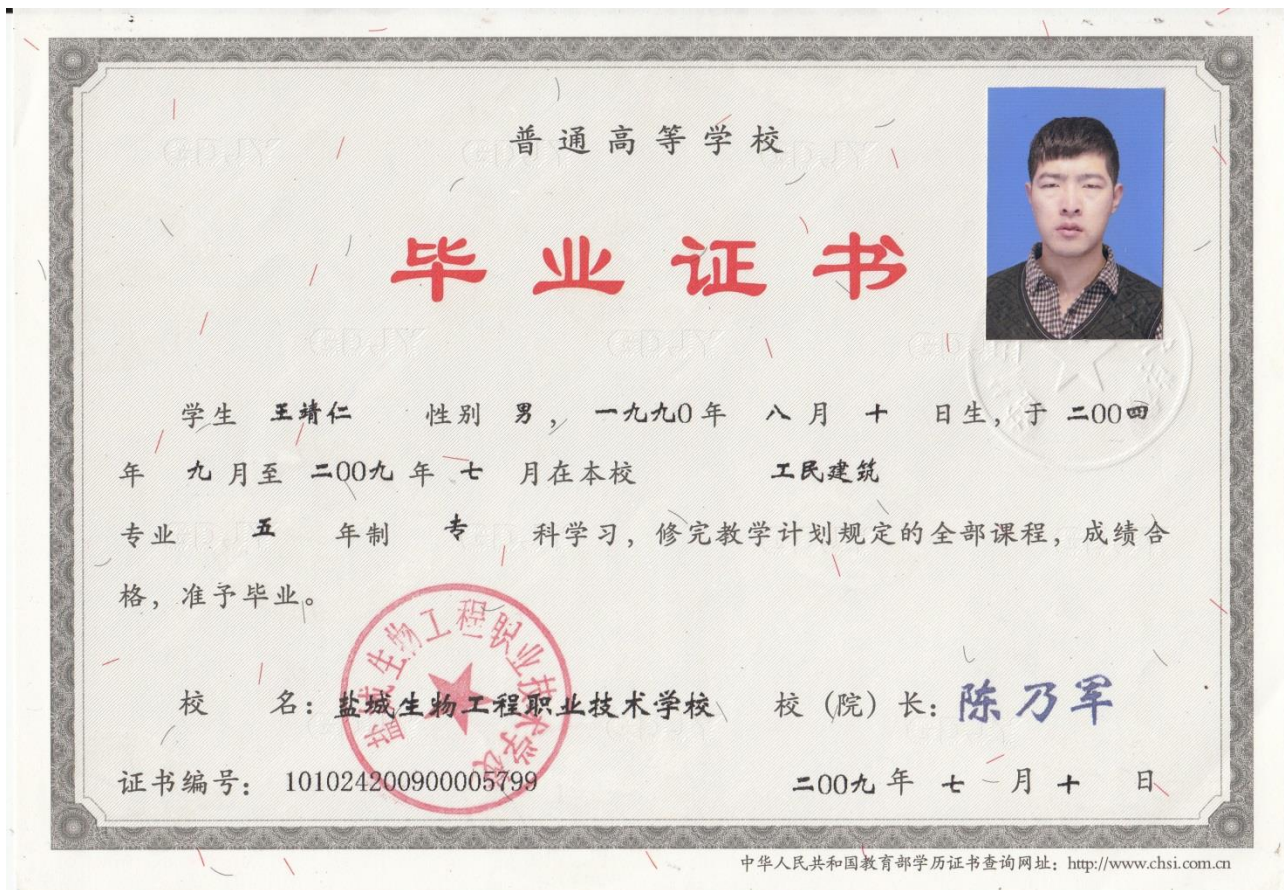 普通高等学校
毕业证书
学生 王靖仁 性别 男，一九九0年 八 月 十 日生，于 二00四
年 九 月至 二00九 年 七 月在本校 工民建筑
专业 五 年制 专 科学习，修完教学计划规定的全部课程，成绩合
格，准予毕业。
盐城生物工程职业技术学校
校 名：盐城生物工程职业技术学校 校（院）长：陈乃军
证书编号： 101024200900005799 二00九 年 七 月 十 日
中华人民共和国教育部学历证书查询网址：http://www.chsi.com.cn